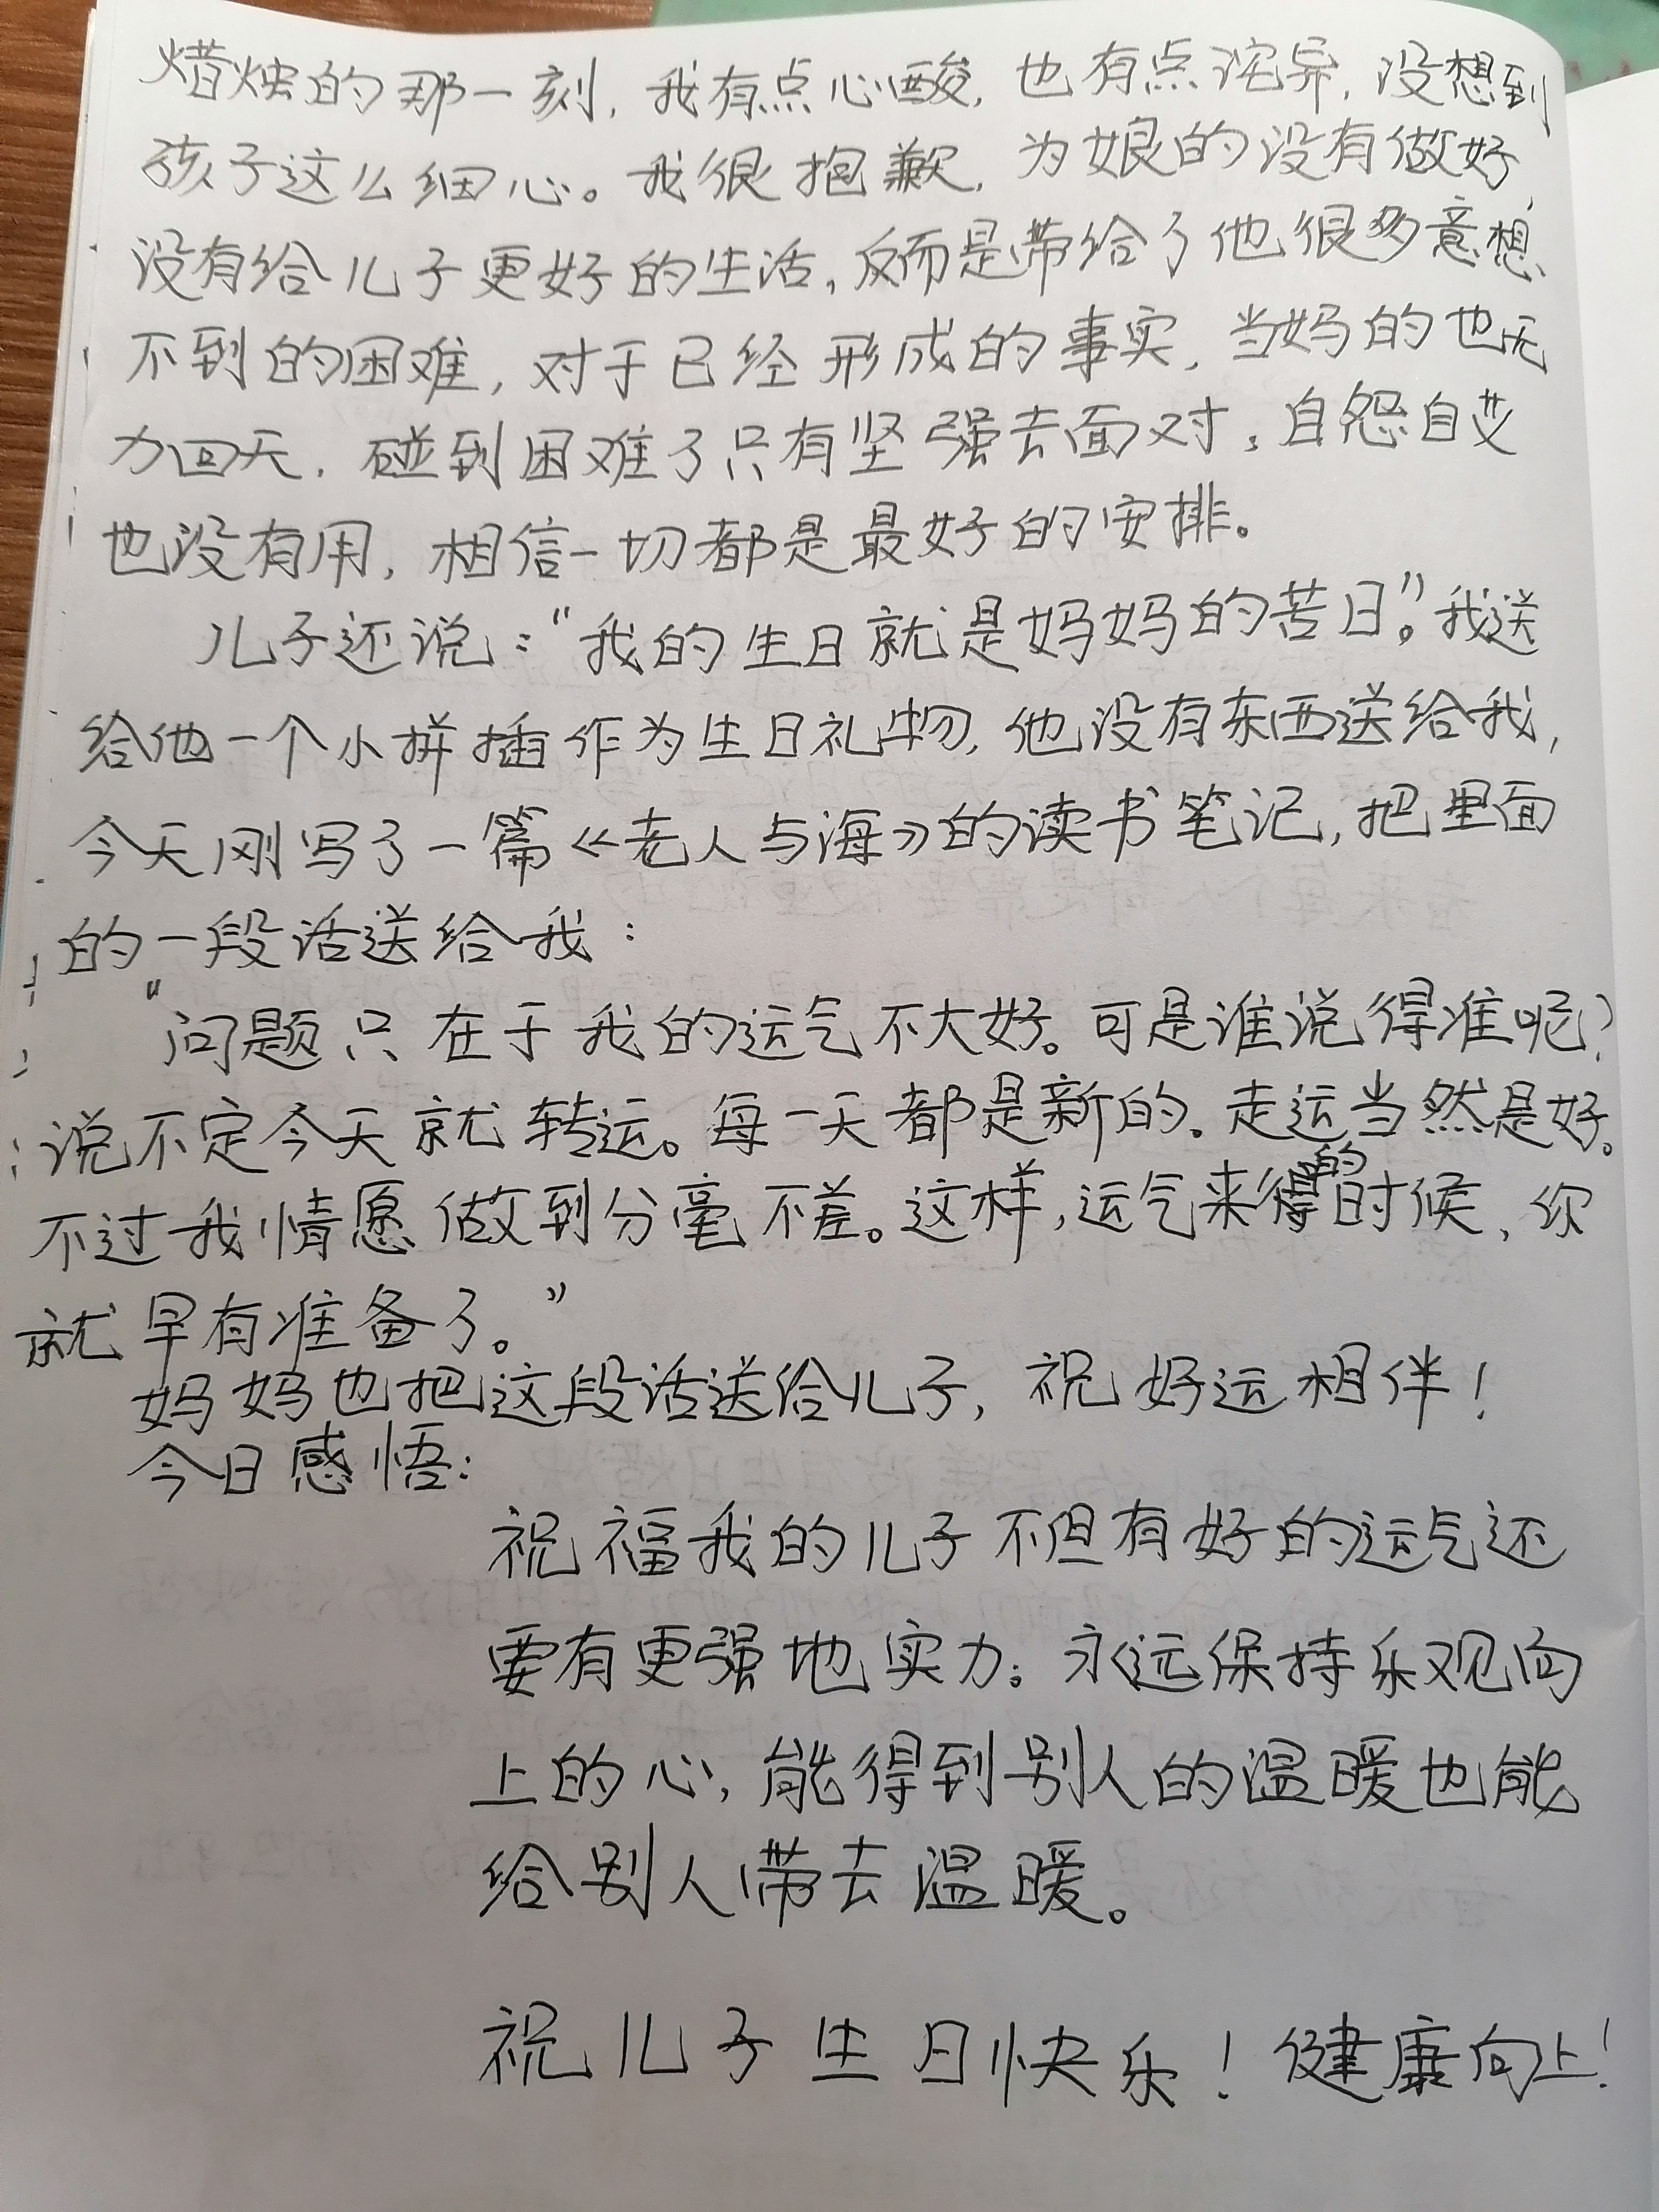 蜡烛的那一刻，我有点心酸，也有点诧异，没想到
孩子这么细心。我很抱歉，为娘的没有做好，
没有给儿子更好的生活，反而是带给了他很多意想
不到的困难，对于已经形成的事实，当妈的也无
力回天，碰到困难了只有坚强去面对，自怨自艾
也没有用，相信一切都是最好的安排。
儿子还说：“我的生日就是妈妈的苦日”。我送
给他一个小拼插作为生日礼物，他没有东西送给我，
今天刚写了一篇《老人与海》的读书笔记，把里面
的一段话送给我：
“问题只在于我的运气不大好。可是谁说得准呢？
说不定今天就转运。每一天都是新的。走运当然是好。
不过我情愿做到分毫不差。这样，运气来的时候，你
就早有准备了。”
妈妈也把这段话送给儿子，祝好运相伴！
今日感悟：
祝福我的儿子不但有好的运气还
要有更强地实力。永远保持乐观向
上的心，能得到别人的温暖也能
给别人带去温暖。
祝儿子生日快乐！健康向上！